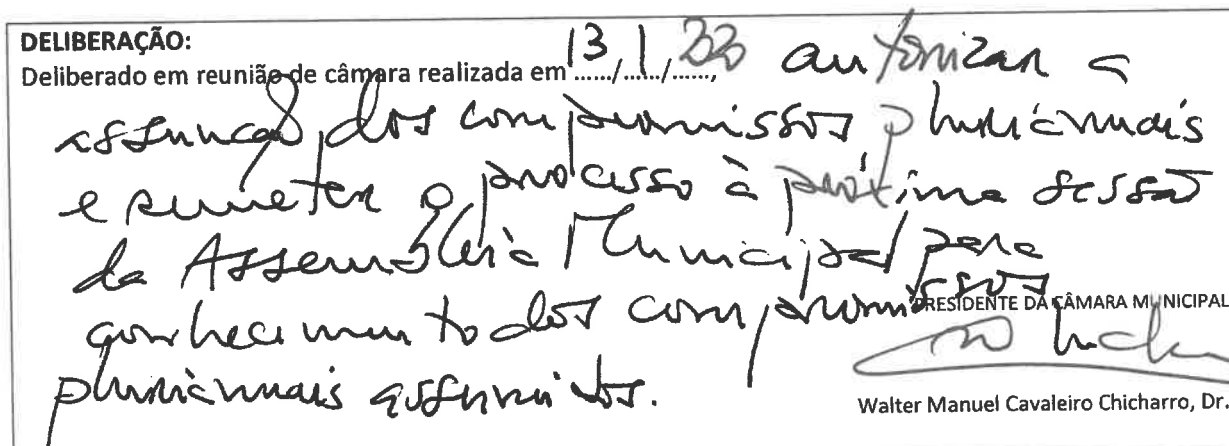 DELIBERAÇÃO:
Deliberado em reunião de câmara realizada em 13/1/23, autorizar a
assunção dos compromissos plurianuais
e remeter o processo à próxima sessão
da Assembleia Municipal para
conhecimento dos compromissos
PRESIDENTE DA CÂMARA MUNICIPAL
plurianuais assumidos.
Walter Manuel Cavaleiro Chicharro, Dr.